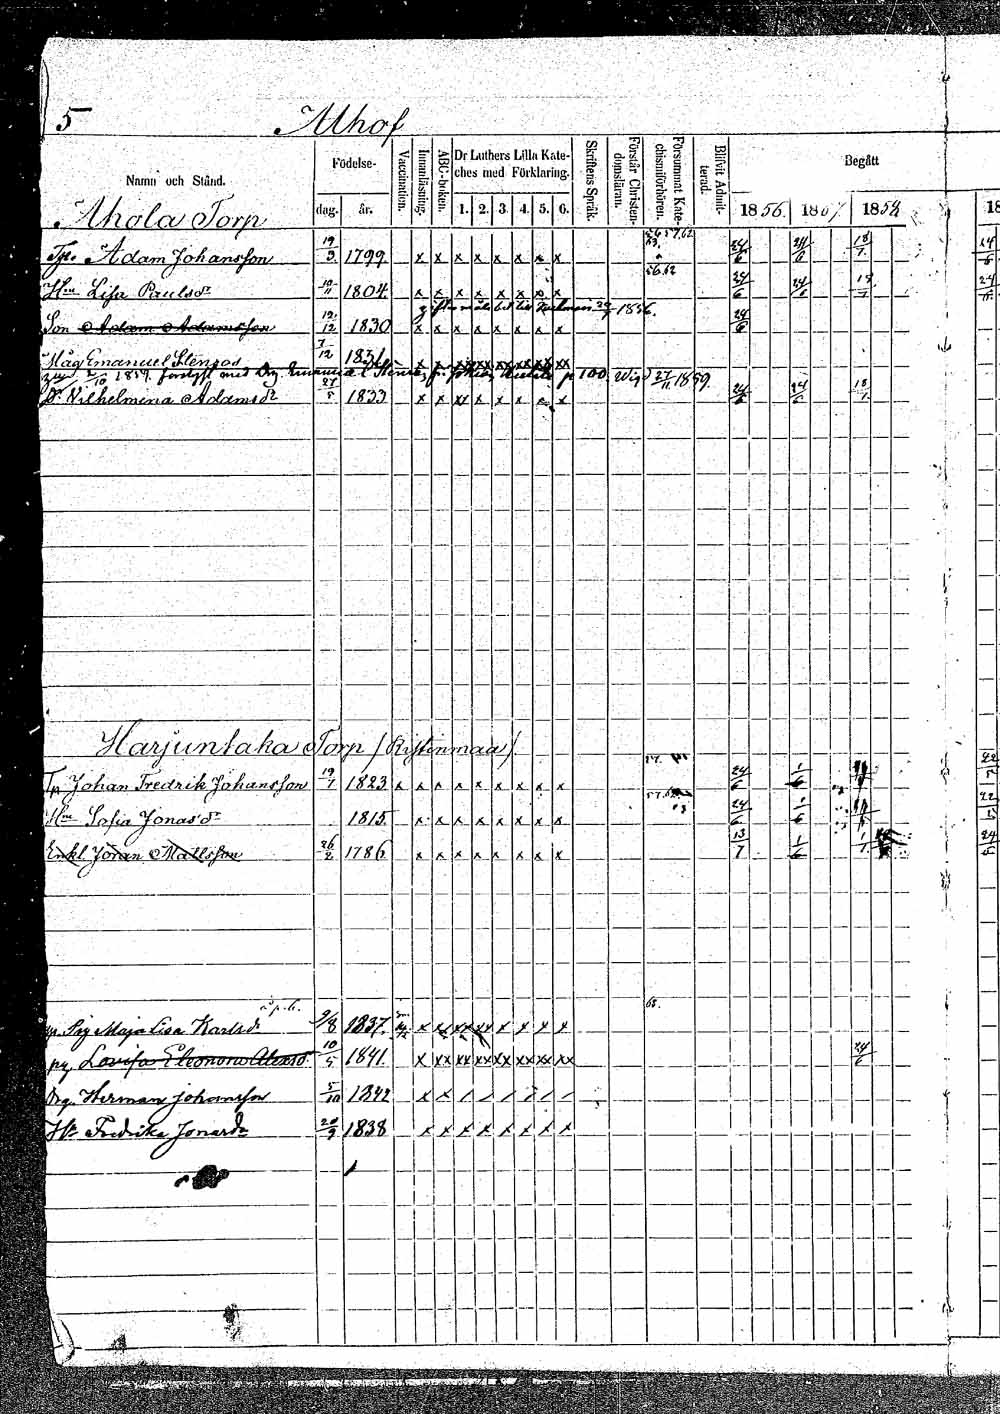 5 Alhof
Namn och Stånd.
Födelse-
dag. år.
Vaccination.
Innanläsning.
ABC-boken.
Dr Luthers Lilla Kate-
ches med Förklaring.
1. 2. 3. 4. 5. 6.
Skriftens Språk.
Förstår Christen-
domsläran.
Försummat Kate-
chismiförhören.
Blifvit Admit-
terad.
Begått
1856. 1857. 1858 18
Ahola Torp
Adam Johansson 19/3 1799 x x x x x x x x 24/6 24/6 18/7
Hru Lisa Paulsdr 10/11 1804 x x x x x x x x 24/6 24/6 18/7
1856.
Son Adam Adamsson 19/12 1830 x x x x x x x x 24/6
Måg Emanuel Stenroos 7/12 1831
1859. med Drg Emanuel p 100. Wigd 27/11 1859.
D. Vilhelmina Adamsdr 27/5 1833 x x xx x x x x x 24/6 24/6 18/7
Harjuntaka Torp (Ristinmaa)
Tp Johan Fredrik Johansson 19/1 1823 x x x x x x x x x 24/6 1/6
Hru Sofia Jonasdr 1815. x x x x x x x x 24/6 1/6
Enkl. Johan Mattsson 26/2 1786 x x x x x x x x 13/7 1/6
Pig Maja Lisa Karlsdr 9/8 1837. 68.
pig. Lovisa Eleonora Alexsd. 10/5 1841. x xx xx xx xx xx xx xx 24/6
Drg. Herman Johansson 5/10 1842 x x / / / / / /
Hu Fredrika Jonasdr 1838 x x x x x x x x